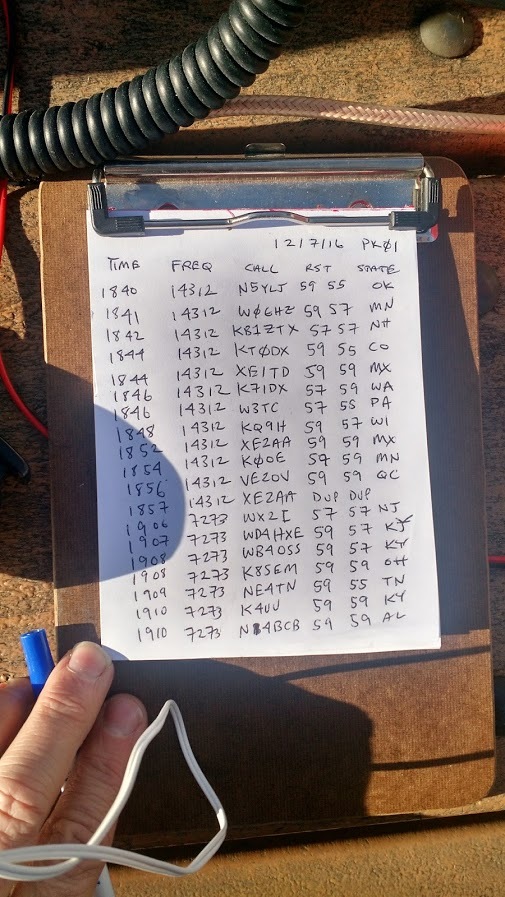 12/7/16 PKØ1
TIME FREQ CALL RST STATE
1840 14312 N5YLJ 59 55 OK
1841 14312 WØ6HZ 59 57 MN
1842 14312 KB1ZTX 57 57 NH
1844 14312 KTØDX 59 55 CO
1844 14312 XE1TD 59 59 MX
1846 14312 K7IDX 57 59 WA
1846 14312 W3TC 57 55 PA
1848 14312 KQ9H 59 57 WI
1852 14312 XE2AA 59 59 MX
1854 14312 KØOE 57 59 MN
1856 14312 VE2OV 59 59 QC
1857 14312 XE2AA DUP DUP
1906 7273 WX2I 57 57 NJ
1907 7273 WD4HXE 59 57 KY
1908 7273 WB4OSS 59 57 KY
1908 7273 K8SEM 59 59 OH
1909 7273 NE4TN 59 55 TN
1910 7273 K4UU 59 59 KY
1910 7273 N4BCB 59 59 AL